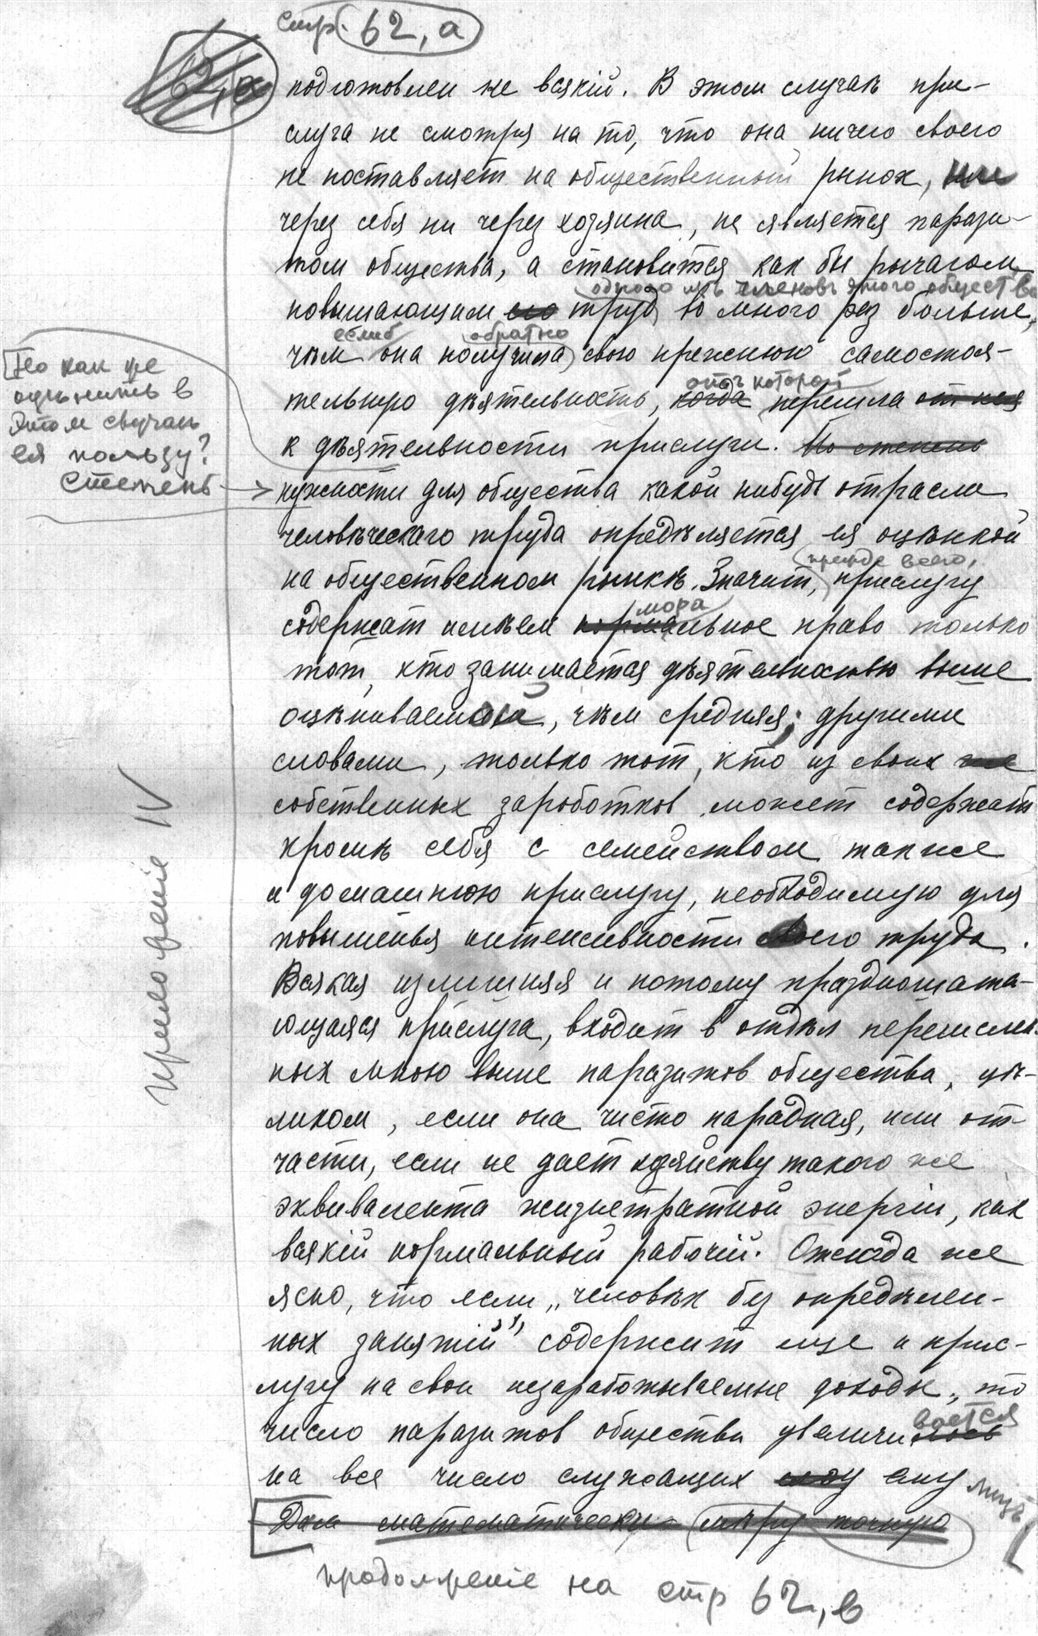 Стр. 62, а
62, а
подготовлен не всякій. В этом случаѣ при-
слуга не смотря на то, что она ничего своего
не поставляет на общественный рынок, ни
через себя ни через хозяина, не является парази-
том общества, а становится как бы рычагом
одного изъ членовъ этого общества
повышающим его труд во много раз больше,
еслиб обратно
чѣм она получила свою прежнюю самостоя-
отъ которой
тельную дѣятельность, когда перешла от нея
к дѣятельности прислуги. Но степень
Но как же
оцѣнить в
этом случаѣ
ея пользу?
Степень
нужности для общества какой нибудь отрасли
человѣческаго труда опредѣляется ея оцѣнкой
прежде всего,
на общественном рынкѣ. Значит, прислугу
мора
содержат имѣем нормальное право только
тот, кто занимается дѣятельностью выше
оцѣниваемой, чѣм средняя; другими
словами, только тот, кто из своих
собственных заработков может содержать
кромѣ себя с семейством также
и домашнюю прислугу, необходимую для
повышенья интенсивности своего труда.
Всякая излишняя и потому праздношата-
ющаяся прислуга, входит в отдѣл перечислен-
ных мною выше паразитов общества, цѣ-
ликом, если она чисто парадная, или от-
части, если не дает хозяйству такого же
эквивалента жизнетратной энергіи, как
всякій нормальный рабочій. Отсюда же
ясно, что если „человѣк без опредѣлен-
ных занятій" содержит еще и прис-
лугу на свои незарабатываемые доходы, то
вается
число паразитов общества увеличилось
на все число служащих ему лицъ
Дать математическую мѣру точную
Приложеніе IV
продолженіе на стр 62, в